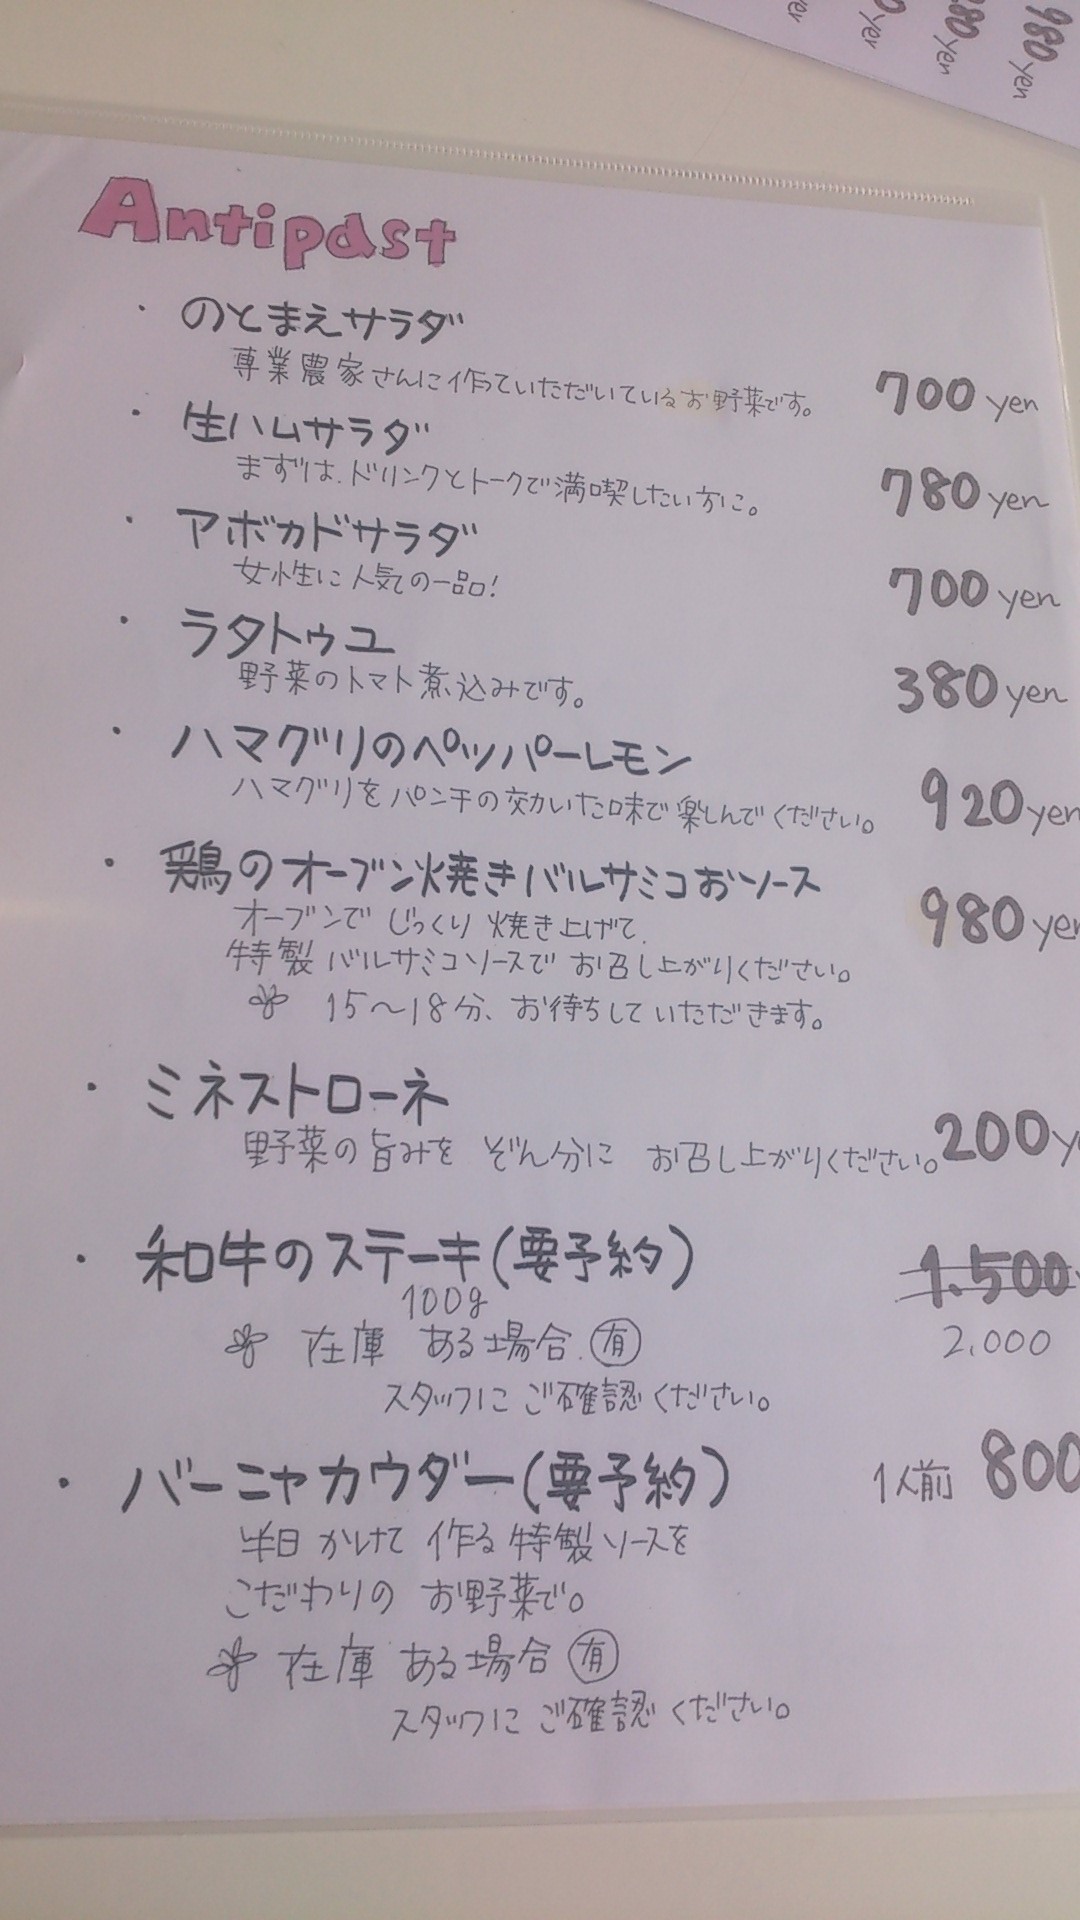 980 yen
980 yen
yen
yen
Antipast
・のとまえサラダ
専業農家さんに作ていただいているお野菜です。 700 yen
・生ハムサラダ
まずは、ドリンクとトークで満喫したい方に。 780 yen
・アボカドサラダ
女性に人気の一品! 700 yen
・ラタトゥユ
野菜のトマト煮込みです。 380 yen
・ハマグリのペッパーレモン
ハマグリをパンチの効いた味で楽しんでください。 920 yen
・鶏のオーブン焼きバルサミコおソース 980 yen
オーブンでじっくり焼き上げて、
特製バルサミコソースでお召し上がりください。
15〜18分、お待ちしていただきます。
・ミネストローネ
野菜の旨みをぞん分にお召し上がりください。 200 y
・和牛のステーキ(要予約) 1.500
100g
在庫ある場合、有 2,000
スタッフにご確認ください。
・バーニャカウダー(要予約) 1人前 800
半日かけて作る特製ソースを
こだわりのお野菜で。
在庫ある場合 有
スタッフにご確認ください。